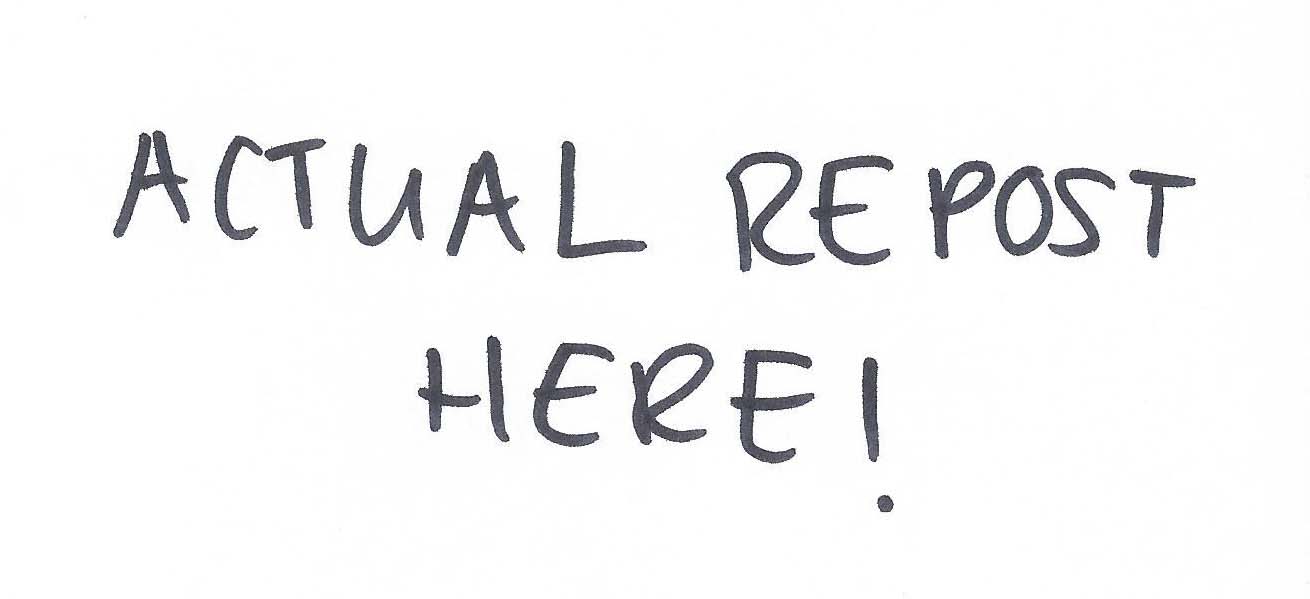 ACTUAL REPOST
HERE!